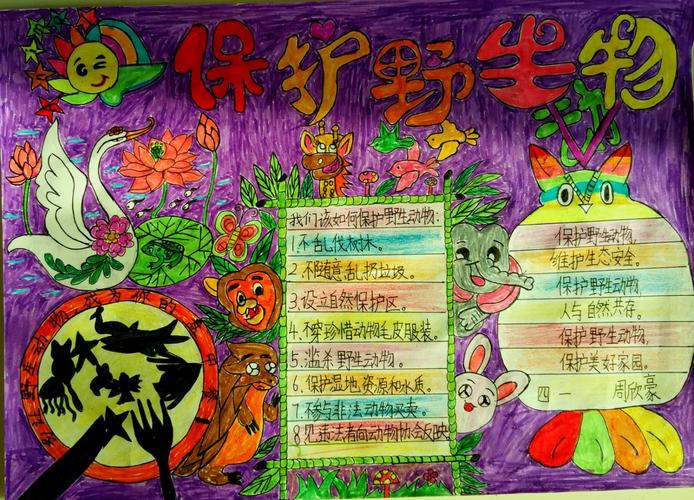 保护野生动物
我们该如何保护野生动物:
1.不乱伐树木。
2.不随意乱扔垃圾。
3.设立自然保护区。
4.不穿珍惜动物毛皮服装。
5.滥杀野生动物。
6.保护湿地、资源和水质。
7.不参与非法动物买卖。
8.违法有向动物协会反映
保护野生动物,
维护生态安全。
保护野生动物
人与自然共存。
保护野生动物,
保护美好家园。
四一 周欣豪
野生动物成为你的盘中